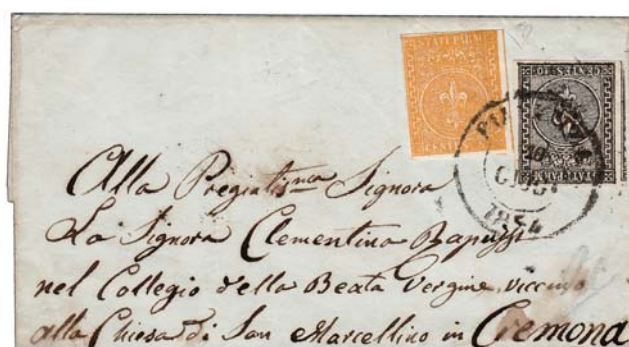 STATI PARM
CENTES. 10
STATI PARM.
GIUG.
1854
Alla Pregiatis.ma Signora
La Signora Clementina
nel Collegio della Beata Vergine, viccino
alla Chiesa di San Marcellino in Cremona